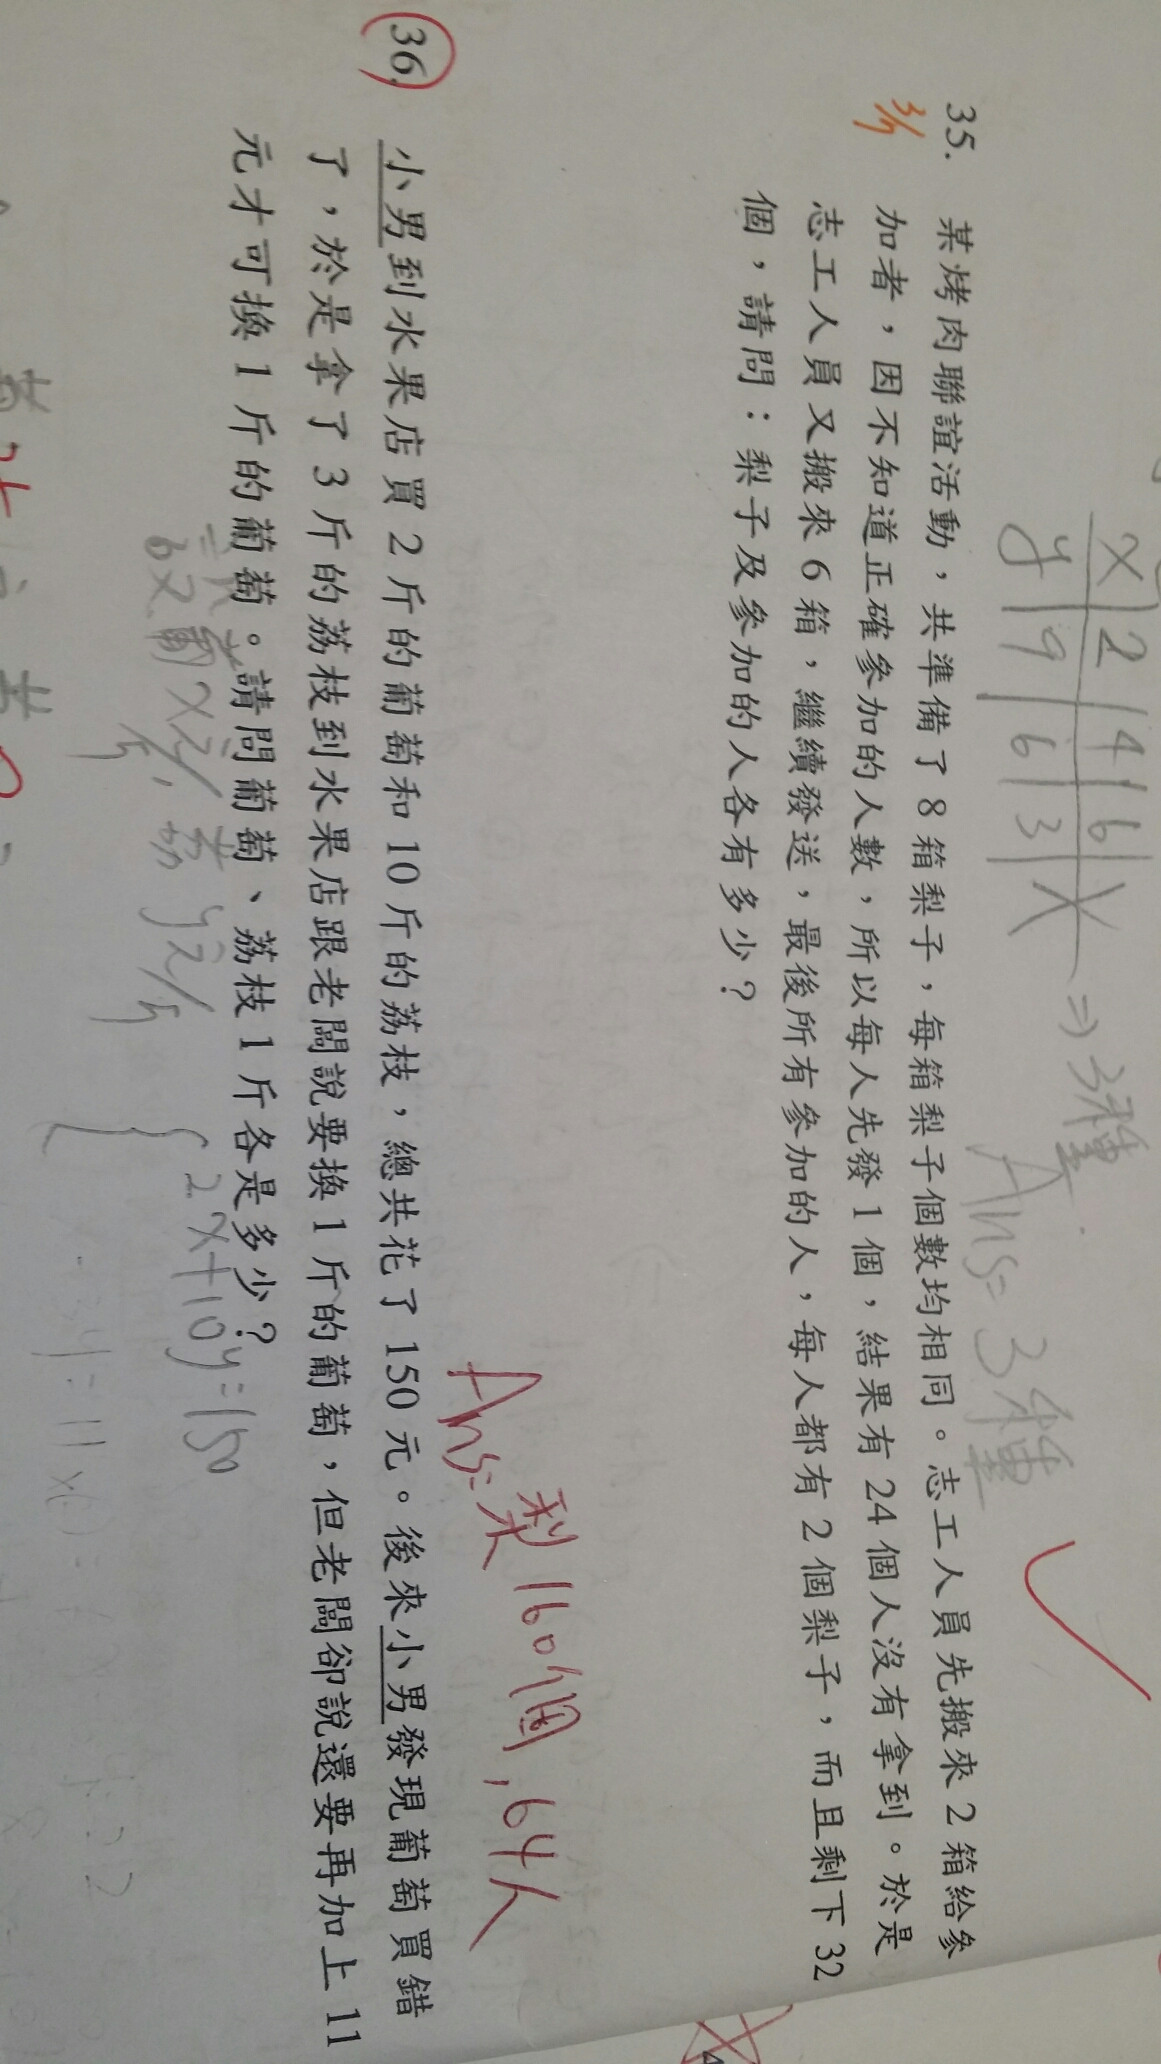 x 2 4 6 X
y 9 6 3
⇒ 3種
Ans= 3種
35. 某烤肉聯誼活動，共準備了 8 箱梨子，每箱梨子個數均相同。志工人員先搬來 2 箱給參
加者，因不知道正確參加的人數，所以每人先發 1 個，結果有 24 個人沒有拿到。於是
志工人員又搬來 6 箱，繼續發送，最後所有參加的人，每人都有 2 個梨子，而且剩下 32
個，請問：梨子及參加的人各有多少？
Ans: 梨 160個，64人
36. 小男到水果店買 2 斤的葡萄和 10 斤的荔枝，總共花了 150 元。後來小男發現葡萄買錯
了，於是拿了 3 斤的荔枝到水果店跟老闆說要換 1 斤的葡萄，但老闆卻說還要再加上 11
元才可換 1 斤的葡萄。請問葡萄、荔枝 1 斤各是多少？
2x+10y=150